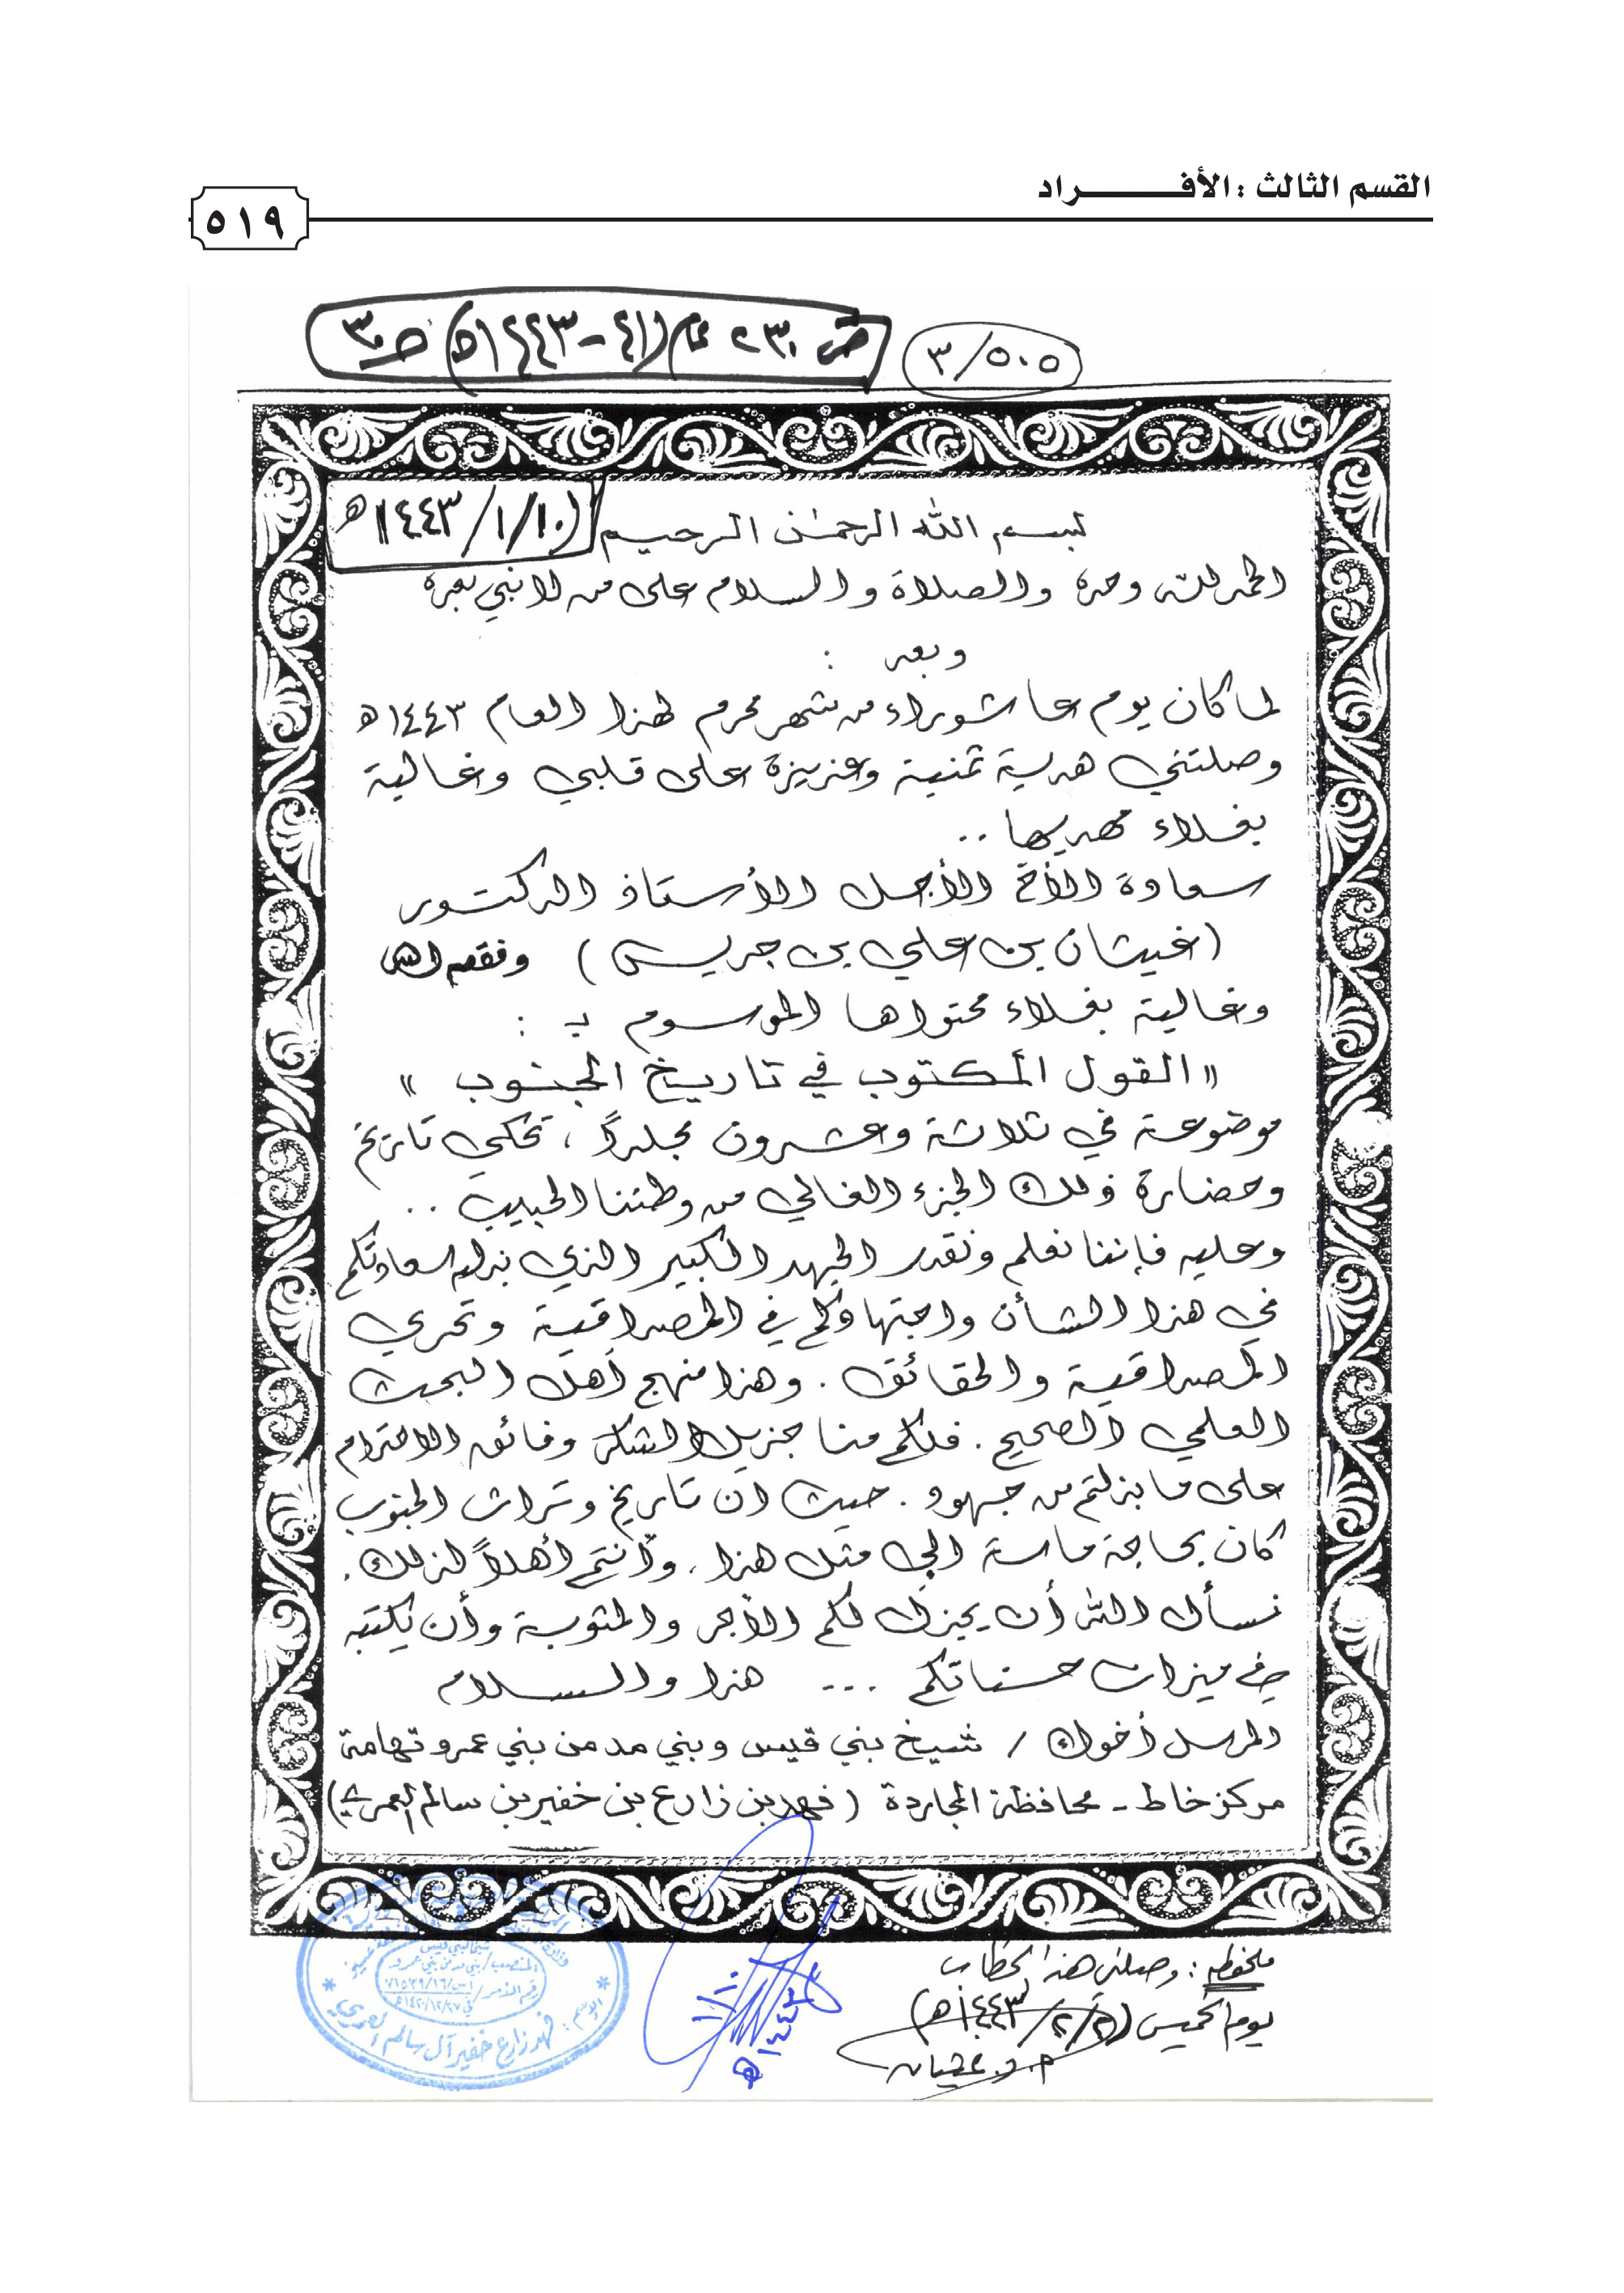 القسم الثالث : الأفـــــــــراد
٥١٩
٣/٥٠٥
بسم الله الرحمن الرحيم (١٤٤٣/١/١٠هـ
الحمد لله وحده والصلاة والسلام على من لا نبي بعده
وبعد :
لما كان يوم عاشوراء من شهر محرم لهذا العام ١٤٤٣هـ
وصلتني هدية ثمينة وعزيزة على قلبي وغالية
بغلاء مهديها ..
سعادة الأخ الأجل الأستاذ الدكتور
(غيثان بن علي بن جريس) وفقه الله
وغالية بغلاء محتواها الموسوم بـ :
" القول المكتوب في تاريخ الجنوب "
موضوعة في ثلاثة وعشرون مجلداً ، تحكي تاريخ
وحضارة ذلك الجزء الغالي من وطننا الحبيب ..
وعليه فإننا نعلم ونقدر الجهد الكبير الذي بذله سعادتكم
في هذا الشأن واجتهادكم في المصداقية وتحري
المصداقية والحقائق . وهذا منهج أهل البحث
العلمي الصحيح . فلكم منا جزيل الشكر وفائق الاحترام
على ما بذلتم من جهود . حيث ان تاريخ وتراث الجنوب
كان بحاجة ماسة الى مثل هذا . وأنتم أهلاً لذلك .
نسأل الله أن يجزل لكم الأجر والمثوبة وأن يكتبه
في ميزان حسناتكم ... هذا والسلام
المرسل أخوك / شيخ بني قيس وبني مد من بني عمرو تهامة
مركز خاط - محافظة المجاردة (فهد بن زارع بن خفير بن سالم العمري)
ملحوظة : وصلني هذا الخطاب
يوم الخميس
أ.د. غيثان
شيخ لبني قيس
المنصب/ بني مد من بني عمرو
الاسم : فهد زارع خفير آل سالم العمري